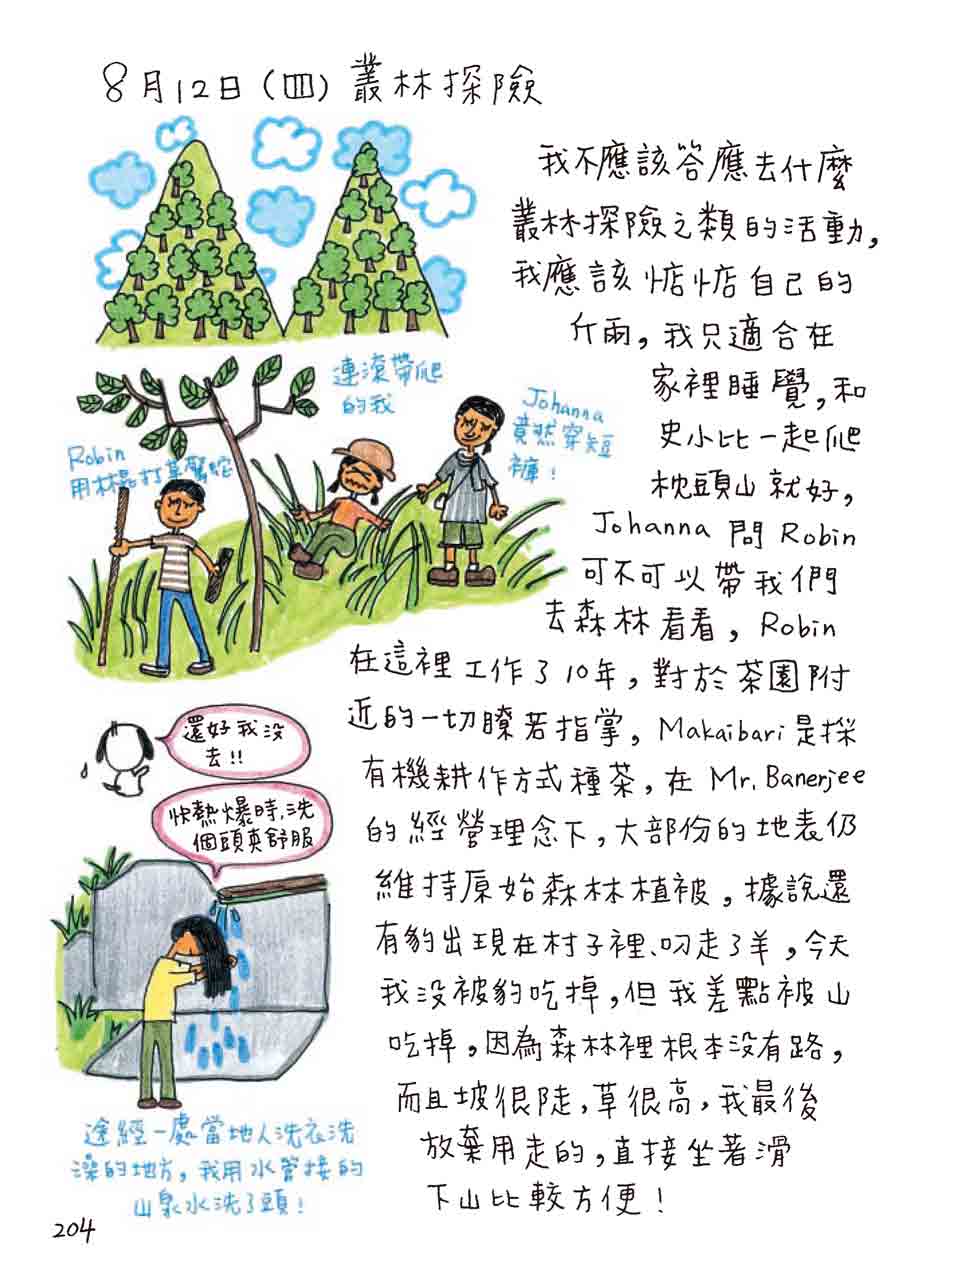 8月12日(四)叢林探險
我不應該答應去什麼
叢林探險之類的活動,
我應該惦惦自己的
斤兩,我只適合在
家裡睡覺,和
史小比一起爬
枕頭山就好,
Johanna 問 Robin
可不可以帶我們
去森林看看,Robin
在這裡工作了10年,對於茶園附
近的一切瞭若指掌,Makaibari是採
有機耕作方式種茶,在 Mr. Banerjee
的經營理念下,大部份的地表仍
維持原始森林植被,據說還
有豹出現在村子裡、叼走了羊,今天
我沒被豹吃掉,但我差點被山
吃掉,因為森林裡根本沒有路,
而且坡很陡,草很高,我最後
放棄用走的,直接坐著滑
下山比較方便!
連滾帶爬
的我
Johanna
竟然穿短
褲!
Robin
用林棍打草驚蛇
還好我沒
去!!
快熱爆時,洗
個頭爽舒服
途經一處當地人洗衣洗
澡的地方,我用水管接的
山泉水洗了頭!
204